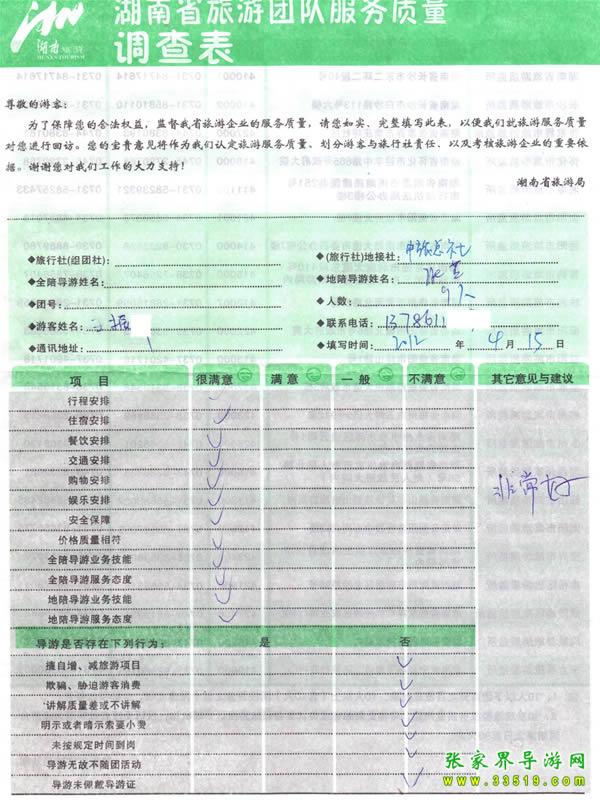 湖南 HUNAN TOURISM
湖南省旅游团队服务质量
调查表
尊敬的游客:
为了保障您的合法权益,监督我省旅游企业的服务质量,请您如实、完整填写此表,以便我们就旅游服务质量
对您进行回访。您的宝贵意见将作为我们认定旅游服务质量、划分游客与旅行社责任、以及考核旅游企业的重要依
据。谢谢您对我们工作的大力支持!
湖南省旅游局
◆旅行社(组团社):
◆(旅行社)地接社:中旅总社
◆全陪导游姓名:
◆地陪导游姓名:
◆团号:
◆人数:9人
◆游客姓名:王振
◆联系电话:1378611
◆通讯地址:
◆填写时间:2012 年 4 月 15 日
项 目 很满意 满 意 一 般 不满意 其它意见与建议
行程安排 ✓
住宿安排 ✓
餐饮安排 ✓
交通安排 ✓
购物安排 ✓
娱乐安排 ✓ 非常好
安全保障 ✓
价格质量相符 ✓
全陪导游业务技能 ✓
全陪导游服务态度 ✓
地陪导游业务技能 ✓
地陪导游服务态度 ✓
导游是否存在下列行为: 是 否
擅自增、减旅游项目 ✓
欺骗、胁迫游客消费 ✓
讲解质量差或不讲解 ✓
明示或者暗示索要小费 ✓
未按规定时间到岗 ✓
导游无故不随团活动 ✓
导游未佩戴导游证 ✓
张家界导游网
www.33519.com